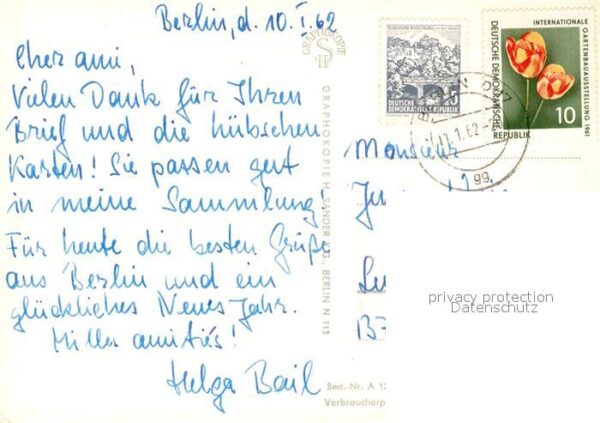 Berlin, d. 10. I. 62
Cher ami,
Vielen Dank für Ihren
Brief und die hübschen
Karten! Sie passen gut
in meine Sammlung!
Für heute die besten Grüße
aus Berlin und ein
glückliches Neues Jahr.
Milles amitiés!
Helga Bail
GRAPHOKOPIE
GRAPHOKOPIE H. SANDER KG., BERLIN N 113
Best.-Nr. A 12
Verbraucherp
25
DEUTSCHE
DEMOKRATISCHE REPUBLIK
INTERNATIONALE
GARTENBAUAUSSTELLUNG 1961
DEUTSCHE DEMOKRATISCHE
REPUBLIK
10
BERLIN
1.62
Monsieur
privacy protection
Datenschutz